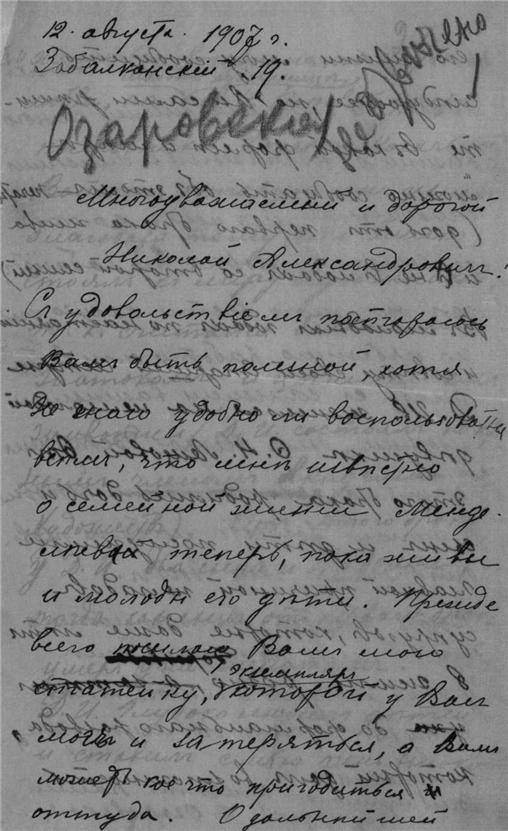 12. августа. 1907 г.
Забалканскій 19.
Озаровской
Получено
Многоуважаемый и дорогой
Николай Александровичъ!
Съ удовольствіемъ постараюсь
Вамъ быть полезной, хотя
Не знаю удобно ли воспользоваться
всѣмъ, что мнѣ извѣстно
о семейной жизни Менде-
лѣева теперь, пока живы
и молоды его дѣти. Прежде
всего посылаю Вамъ мою
статейку, экземпляръ которой у Васъ
могъ и затеряться, а Вамъ
можетъ кое что пригодиться и
оттуда. О дальнѣйшей